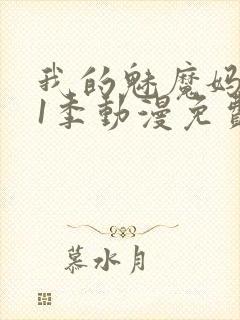 我的魅魔妈
1季動漫免費
慕水月